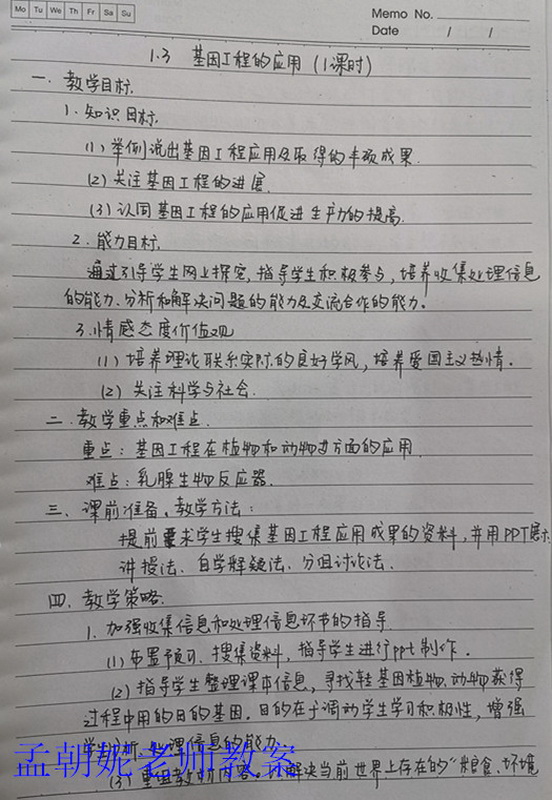 Mo Tu We Th Fr Sa Su
Memo No.
Date / /
1.3 基因工程的应用 (1课时)
一. 教学目标.
1. 知识目标.
(1) 举例说出基因工程应用及取得的丰硕成果.
(2) 关注基因工程的进展.
(3) 认同基因工程的应用促进生产力的提高.
2. 能力目标.
通过引导学生网上探究, 指导学生积极参与, 培养收集处理信息
的能力、分析和解决问题的能力及交流合作的能力。
3. 情感态度价值观
(1) 培养理论联系实际的良好学风, 培养爱国主义热情.
(2) 关注科学与社会.
二. 教学重点和难点.
重点: 基因工程在植物和动物方面的应用
难点: 乳腺生物反应器.
三. 课前准备、教学方法:
提前要求学生搜集基因工程应用成果的资料, 并用PPT展示.
讲授法、自学解疑法、分组讨论法.
四. 教学策略.
1. 加强收集信息和处理信息环节的指导
(1) 布置预习、搜集资料, 指导学生进行ppt制作.
(2) 指导学生整理课本信息, 寻找转基因植物、动物获得
过程中用的目的基因. 目的在于调动学生学习积极性, 增强
学 分析、处理信息的能力
(3) 重组教材内容. 解决当前世界上存在的"粮食、环境
孟朝妮老师教案